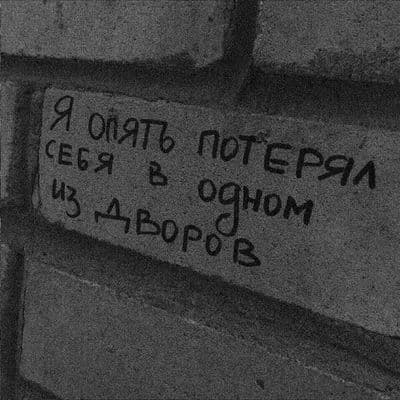 Я ОПЯТЬ ПОТЕРЯЛ
СЕБЯ В ОДНОМ
ИЗ ДВОРОВ